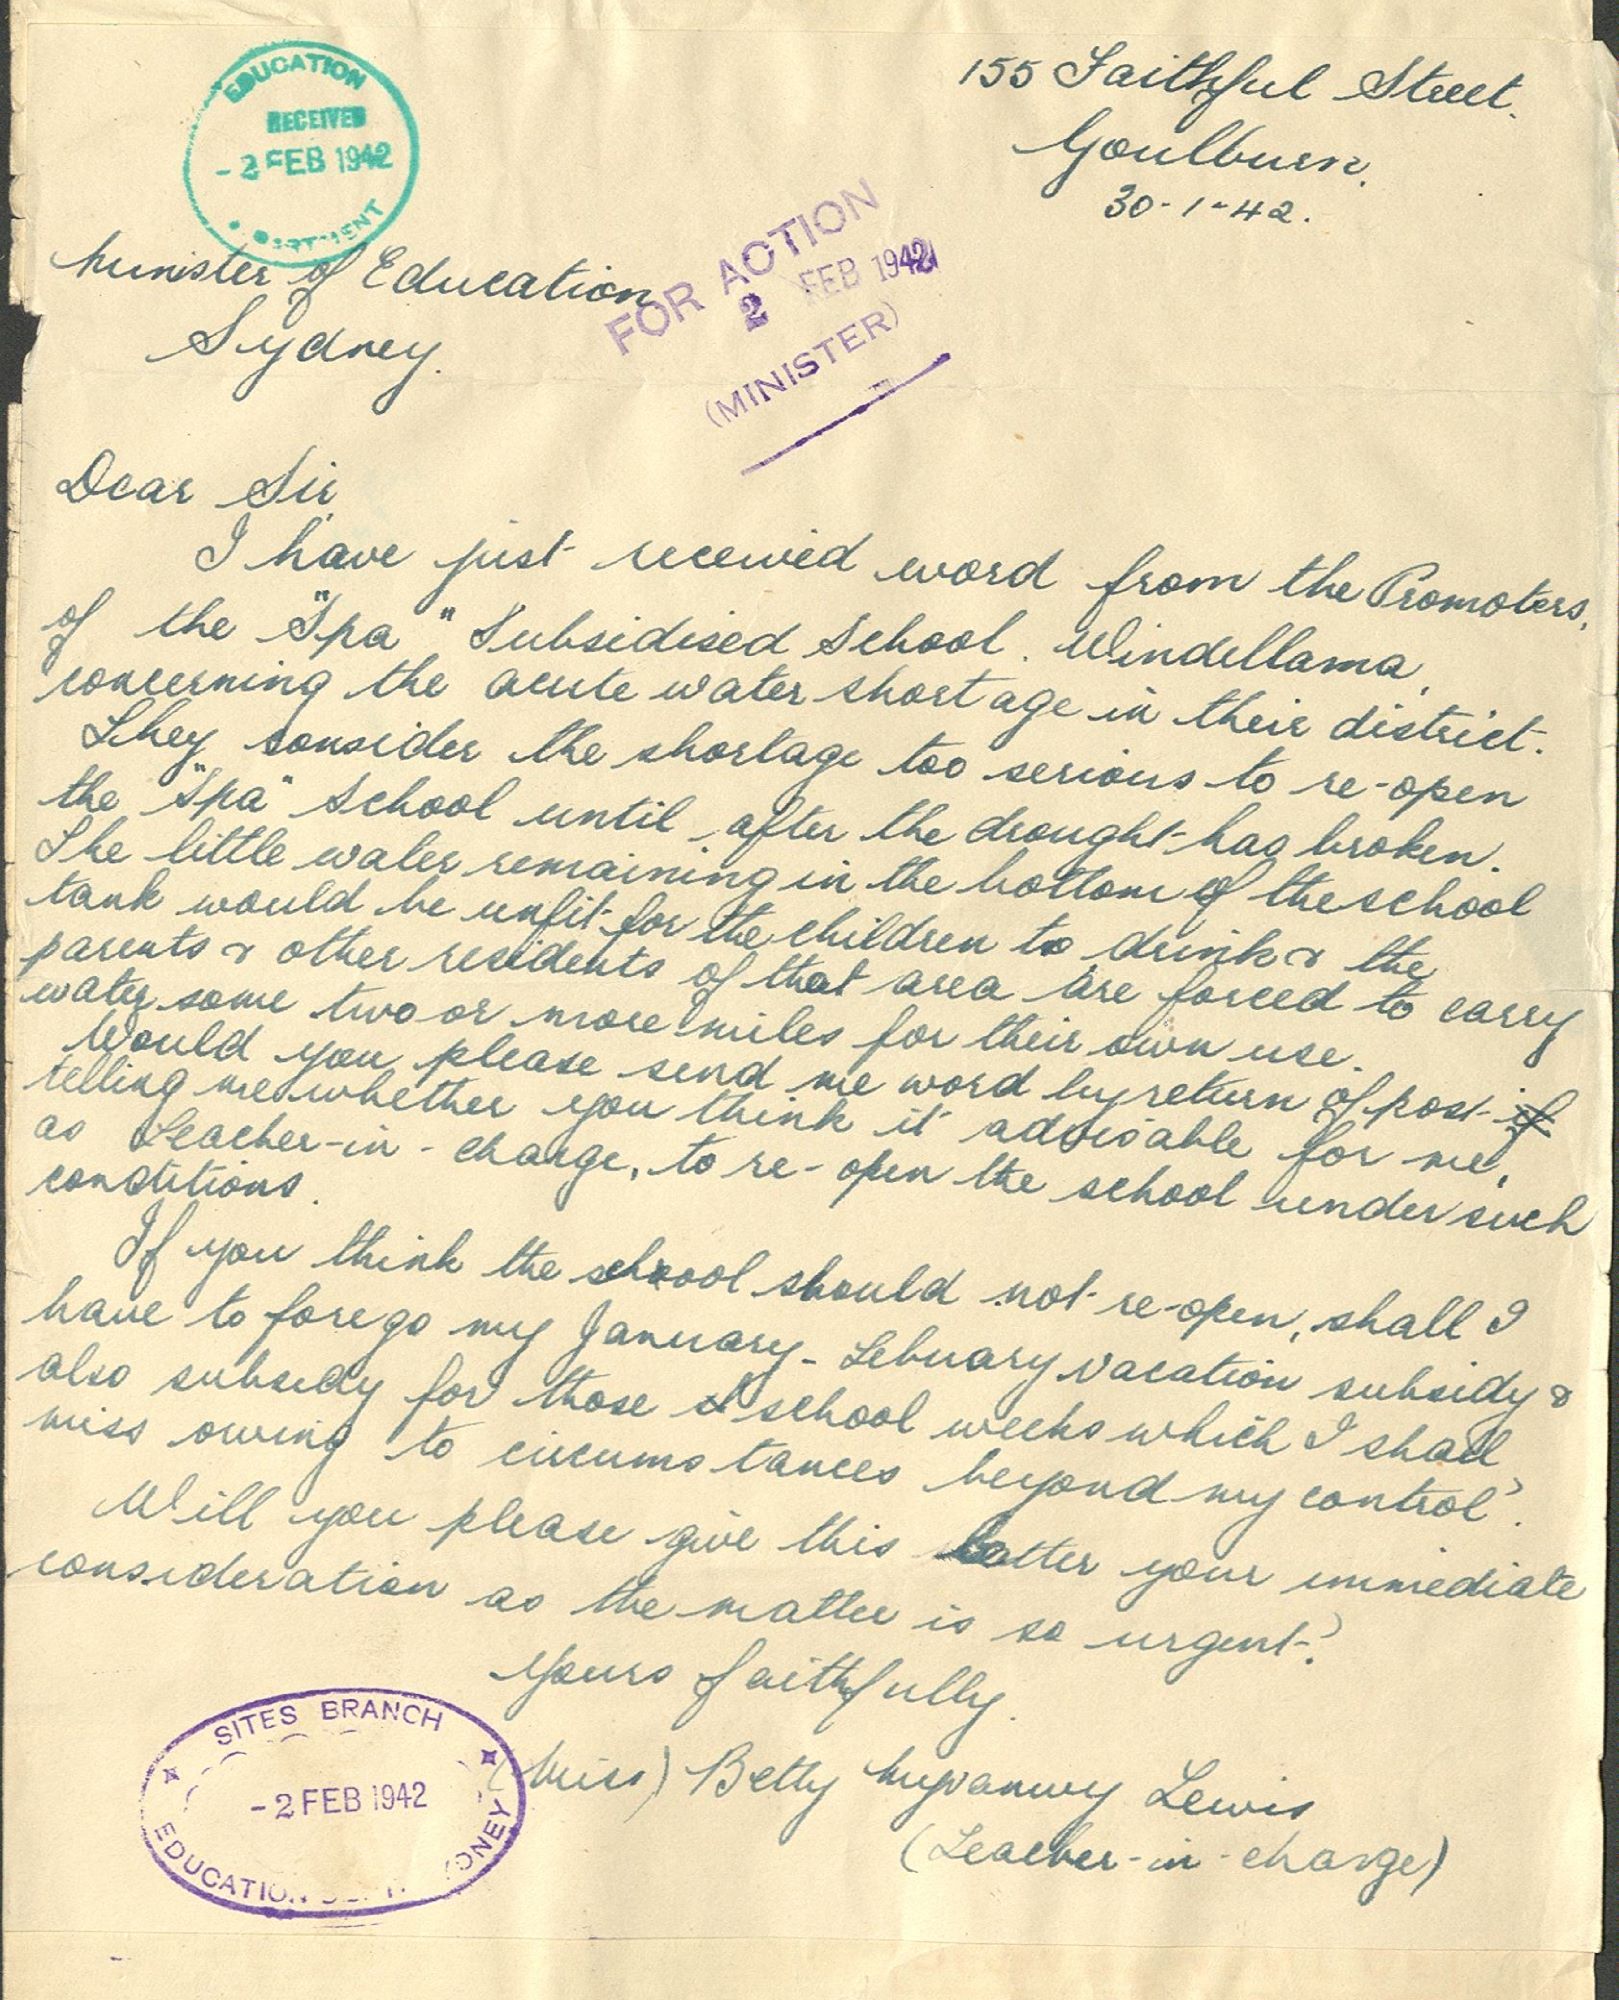 155 Faithful Street.
Goulburn.
30-1-42.
EDUCATION
RECEIVED
-2 FEB 1942
FOR ACTION
2 FEB 1942
(MINISTER)
Minister of Education
Sydney.
Dear Sir,
I have just received word from the Promoters,
of the "Spa" Subsidised School. Windellama,
concerning the acute water shortage in their district.
They consider the shortage too serious to re-open
the "Spa" School until after the drought has broken.
The little water remaining in the bottom of the school
tank would be unfit for the children to drink & the
parents & other residents of that area are forced to carry
water some two or more miles for their own use.
Would you please send me word by return of post if
telling me whether you think it advisable for me,
as Teacher-in-charge, to re-open the school under such
conditions.
If you think the school should not re-open, shall I
have to forego my January-Febuary vacation subsidy &
also subsidy for those school weeks which I shall
miss owing to circumstances beyond my control?
Will you please give this latter your immediate
consideration as the matter is so urgent?
Yours faithfully.
(Miss) Betty Myvanwy Lewis
(Teacher-in-charge)
SITES BRANCH
-2 FEB 1942
EDUCATION